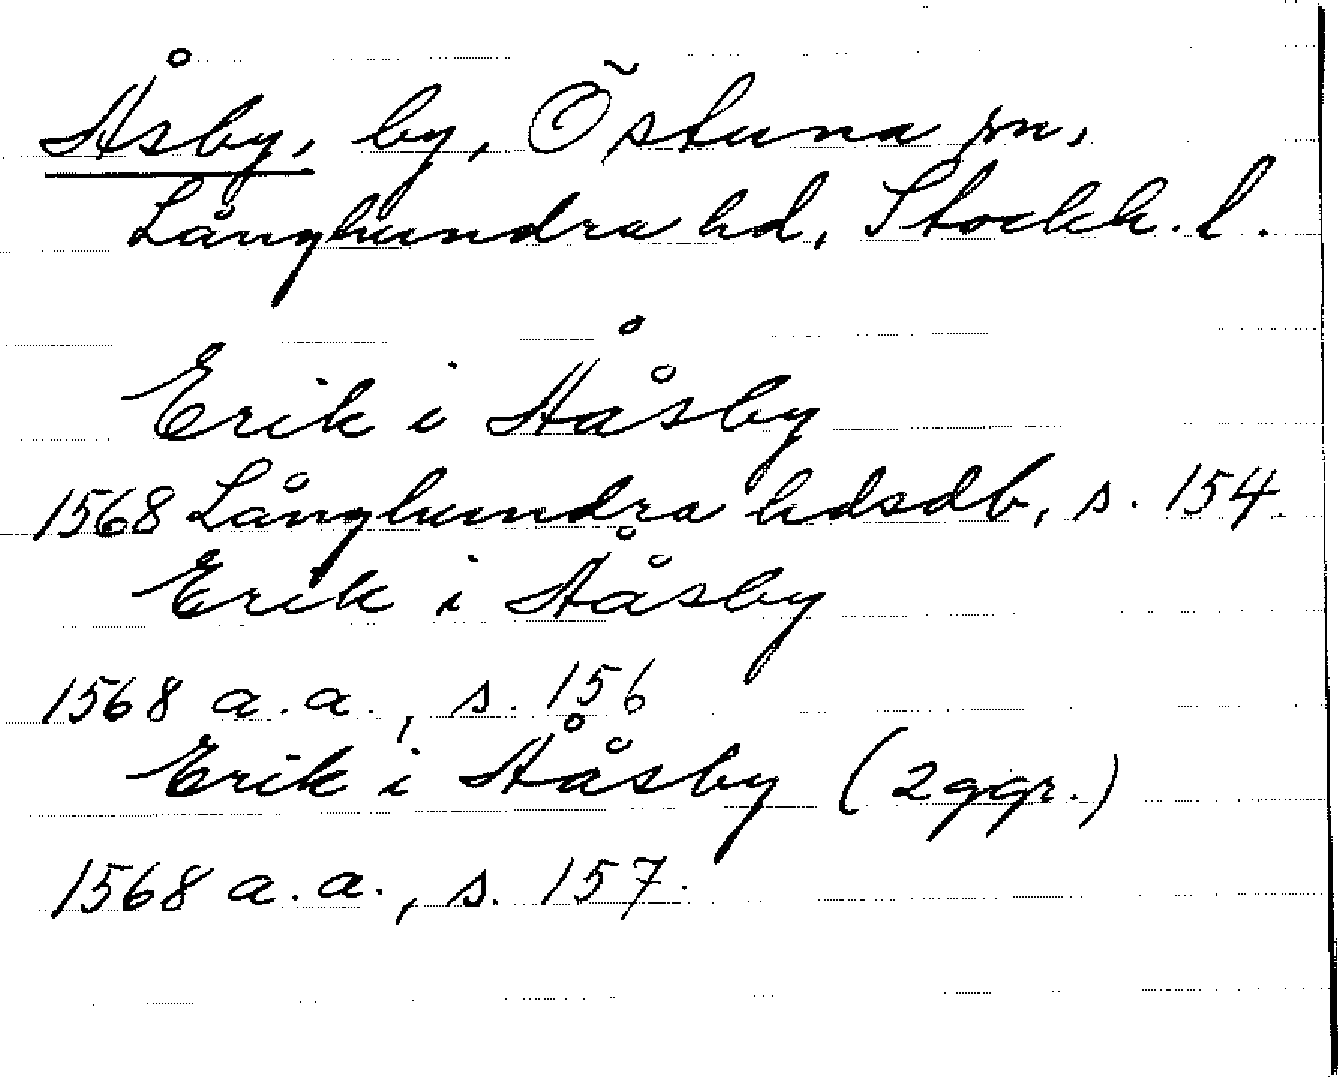 Åsby, by, Östuna sn,
Långhundra hd, Stockh. l.
Erik i Ååsby
1568 Långhundra hdsdb, s. 154.
Erik i Ååsby
1568 a.a., s. 156
Erik i Ååsby (2 ggr.)
1568 a.a., s. 157.